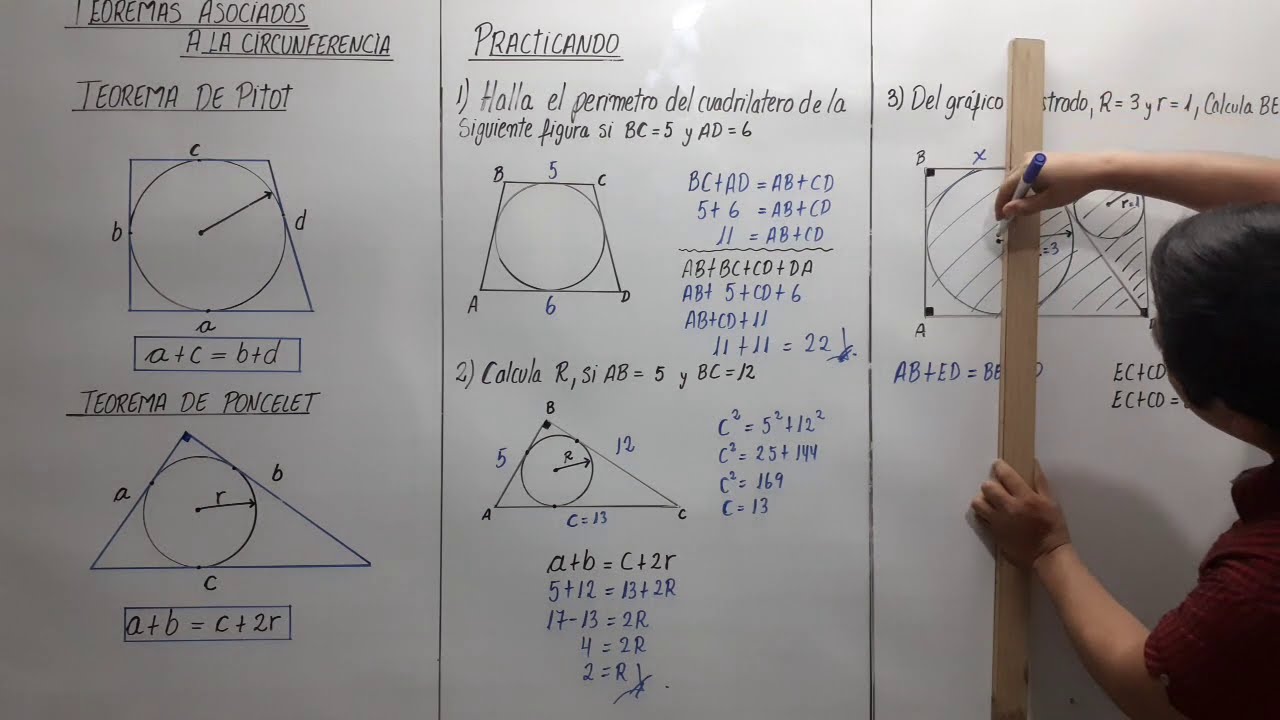 TEOREMAS ASOCIADOS
A LA CIRCUNFERENCIA
TEOREMA DE Pitot
c
b
d
a
a+c = b+d
TEOREMA DE PONCELET
a
b
r
c
a+b = c+2r
PRACTICANDO
1) Halla el perimetro del cuadrilatero de la
Siguiente figura si BC=5 y AD=6
B 5 C
A 6 D
BC+AD = AB+CD
5+6 = AB+CD
11 = AB+CD
AB+BC+CD+DA
AB+ 5+CD+6
AB+CD+11
11+11 = 22
2) Calcula R, si AB= 5 y BC=12
B
5
R
12
A C=13 C
C² = 5²+12²
C² = 25+144
C² = 169
C = 13
a+b = c+2r
5+12 = 13+2R
17-13 = 2R
4 = 2R
2 = R
3) Del gráfico R=3 y r=1, Calcula BE
B x
r=1
=3
A
AB+ED =
EC+CD
EC+CD =